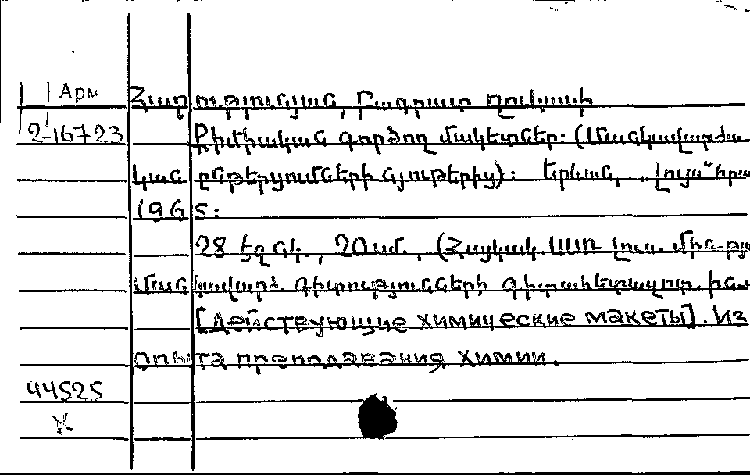 Арм Հարությունյան, Բագրատ Ղուկասի
2-16723 Քիմիական գործող մակետներ: (Մանկավարժա
կան ընթերցումների նյութերից): Երևան, „Լույս" հրա
1965:
28 էջ գն., 20սմ., (Հայկակ. ՍՍՌ լուս. մին-թյ
Մանկավարժ. գիտությունների գիտահետազոտ. ինս
[Действующие химические макеты]. Из
опыта преподавания химии.
44525